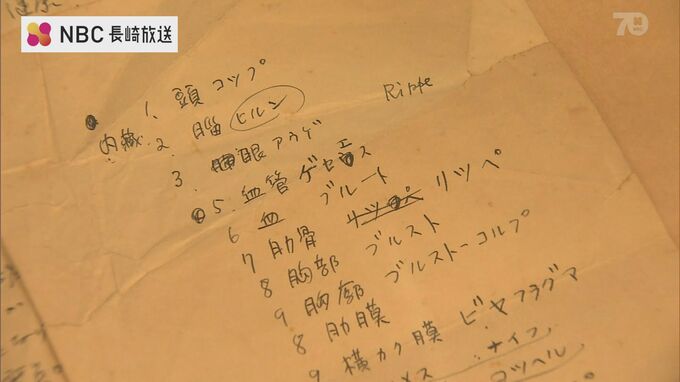 健康
NBC 長崎放送
70
1. 頭 コップ
内臓. 2. 脳 ヒルン
Rippe
3. 眼 アウゲ
5. 血管 ゲセェス
6 血 ブルート
7 肋骨 リツペ
8 胸部 ブルスト
9 胸廓 ブルストーコルプ
8 肋膜
9 横カク膜 ビヤフラグマ
メス ナイフ
コツヘル